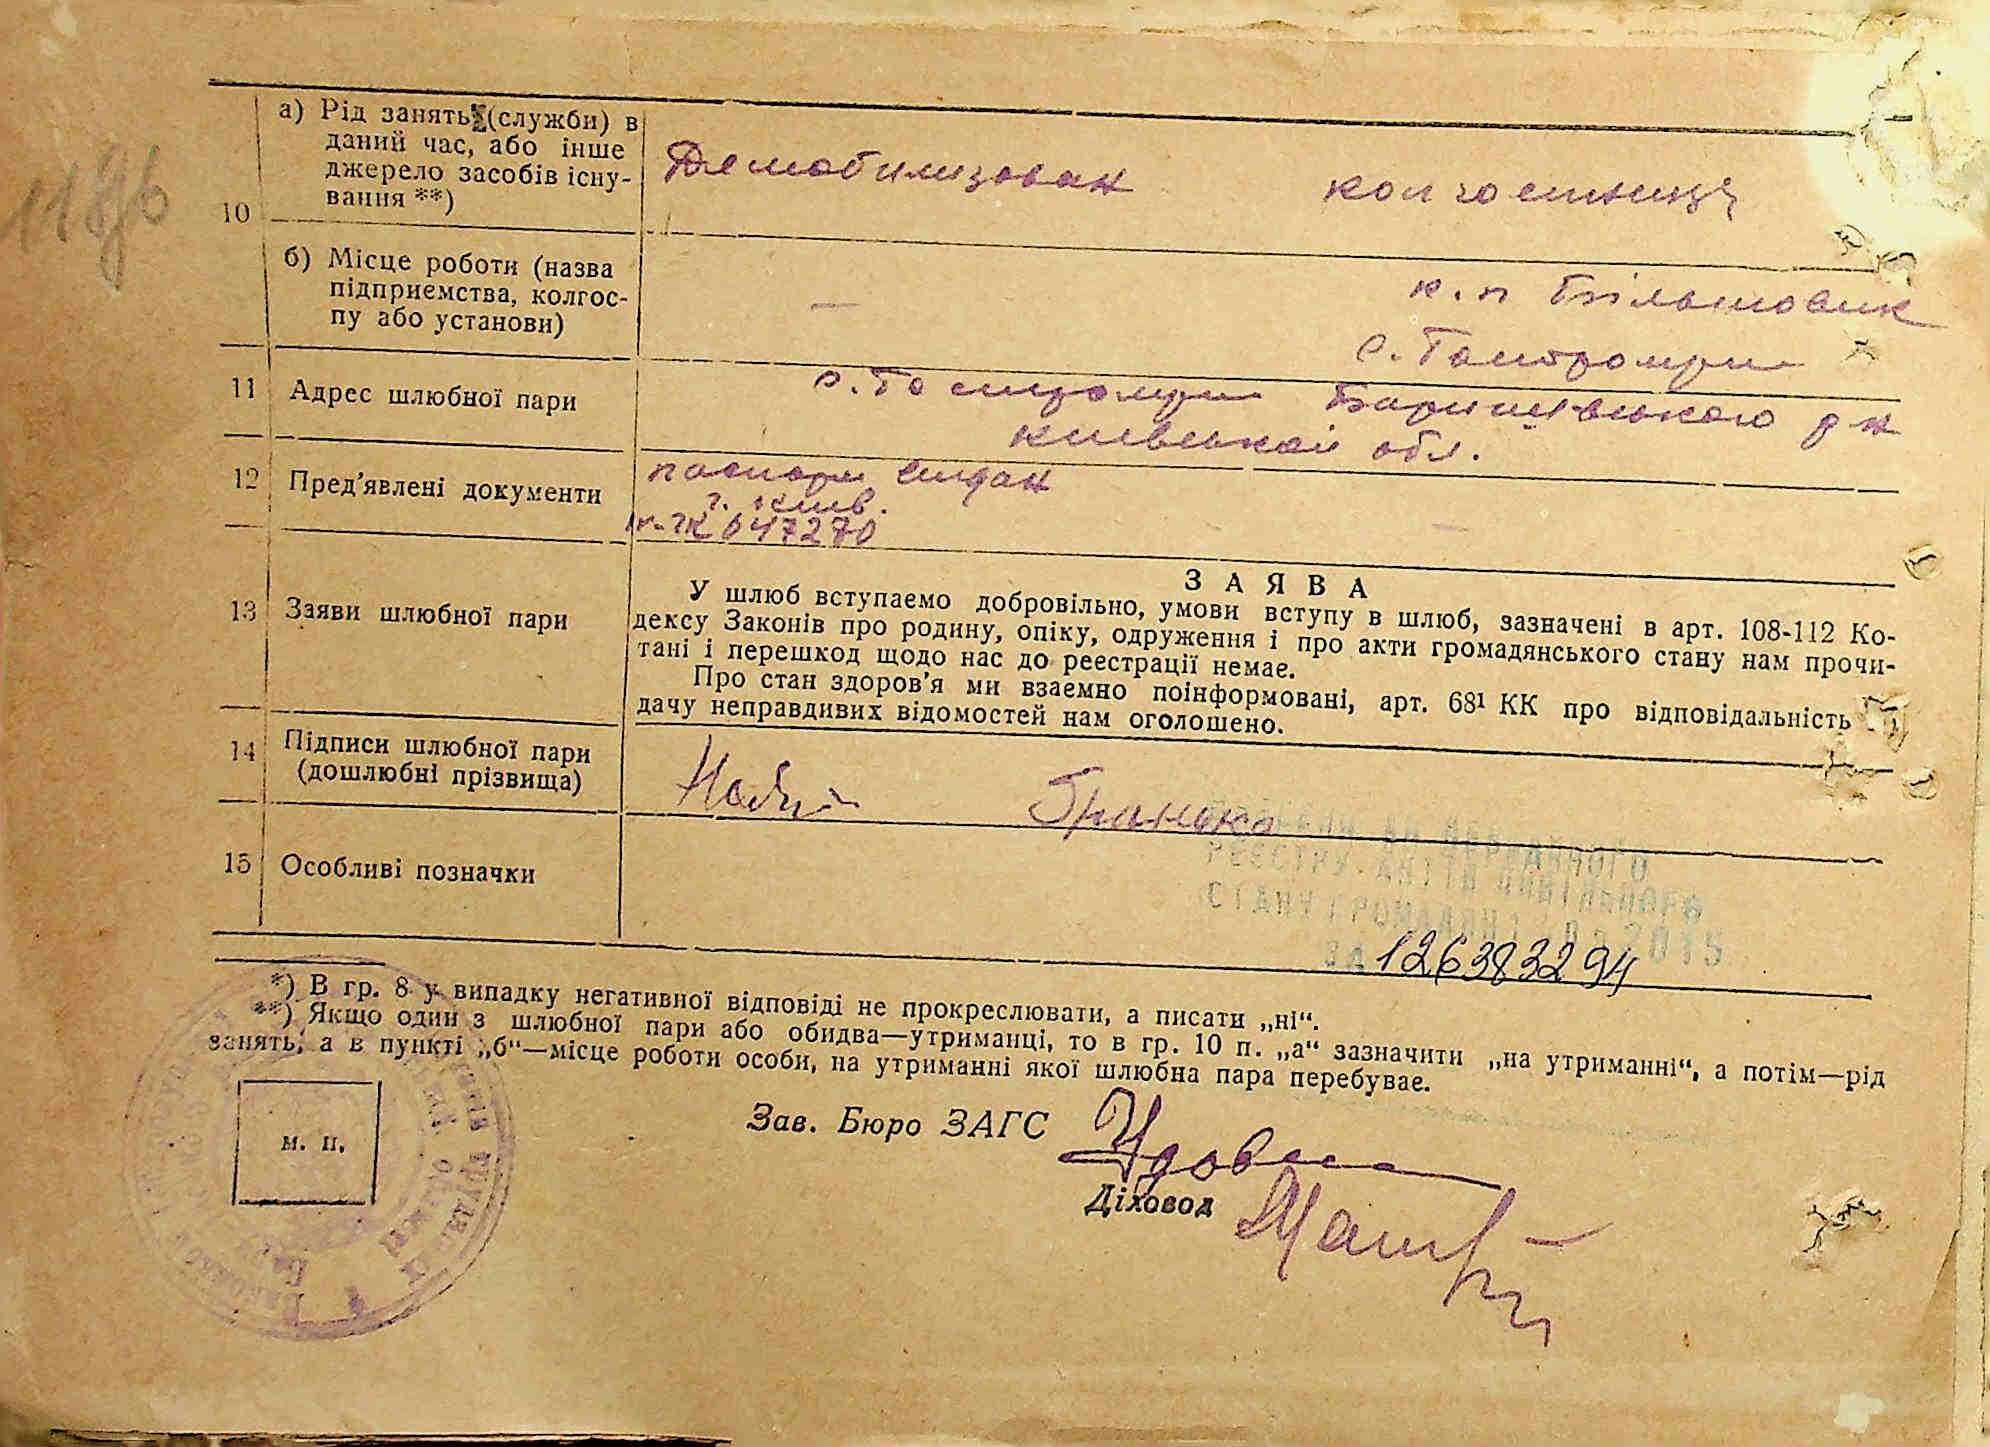 а) Рід занять (служби) в
даний час, або інше
джерело засобів існу-
вання **)
10
Демобилизован
колгостниця
б) Місце роботи (назва
підприємства, колгос-
пу або установи)
—
к.п Більшовик
с.
11 Адрес шлюбної пари
с. Баришевського р н
київської обл.
12 Пред'явлені документи
паспорт видан
г. киев.
647270
—
13 Заяви шлюбної пари
ЗАЯВА
У шлюб вступаємо добровільно, умови вступу в шлюб, зазначені в арт. 108-112 Ко-
дексу Законів про родину, опіку, одруження і про акти громадянського стану нам прочи-
тані і перешкод щодо нас до реєстрації немає.
Про стан здоров'я ми взаємно поінформовані, арт. 68¹ КК про відповідальність
дачу неправдивих відомостей нам оголошено.
14 Підписи шлюбної пари
(дошлюбні прізвища)
15 Особливі позначки
ДЕРЖАВНОГО
РЕЄСТРУ АКТІВ ЦИВІЛЬНОГО
СТАНУ ГРОМАДЯН 2015
ЗА 126383294
*) В гр. 8 у випадку негативної відповіді не прокреслювати, а писати „ні“.
**) Якщо один з шлюбної пари або обидва—утриманці, то в гр. 10 п. „а“ зазначити „на утриманні“, а потім—рід
занять, а в пункті „б“—місце роботи особи, на утриманні якої шлюбна пара перебуває.
м. п.
Зав. Бюро ЗАГС
Діловод